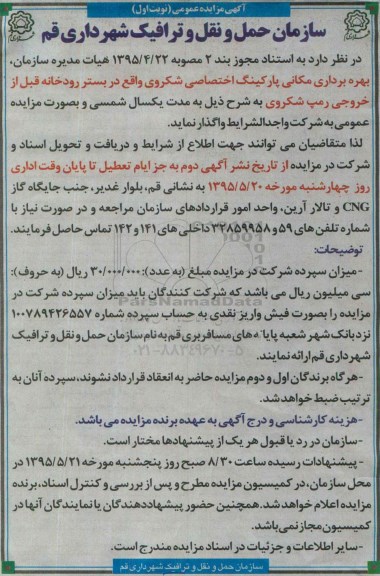 آگهی مزایده عمومی (نوبت اول)
سازمان حمل و نقل و ترافیک شهرداری قم
در نظر دارد به استناد مجوز بند ۲ مصوبه ۱۳۹۵/۴/۲۲ هیات مدیره سازمان،
بهره برداری مکانی پارکینگ اختصاصی شکروی واقع در بستر رودخانه قبل از
خروجی رمپ شکروی به شرح ذیل به مدت یکسال شمسی و بصورت مزایده
عمومی به شرکت واجدالشرایط واگذار نماید.
لذا متقاضیان می توانند جهت اطلاع از شرایط و دریافت و تحویل اسناد و
شرکت در مزایده از تاریخ نشر آگهی دوم به جز ایام تعطیل تا پایان وقت اداری
روز چهارشنبه مورخه ۱۳۹۵/۵/۲۰ به نشانی قم، بلوار غدیر، جنب جایگاه گاز
CNG و تالار آرین، واحد امور قراردادهای سازمان مراجعه و در صورت نیاز با
شماره تلفن های ۵۹ و ۳۲۸۵۹۹۵۸ داخلی های ۱۴۱ و ۱۴۲ تماس حاصل فرمایند.
توضیحات:
-میزان سپرده شرکت در مزایده مبلغ (به عدد): ۳۰/۰۰۰/۰۰۰ ریال (به حروف):
سی میلیون ریال می باشد که شرکت کنندگان باید میزان سپرده شرکت در
مزایده را بصورت فیش واریز نقدی به حساب سپرده شماره ۱۰۰۷۸۹۴۲۶۵۵۷
نزد بانک شهر شعبه پایانه های مسافربری قم به نام سازمان حمل و نقل و ترافیک
شهرداری قم ارائه نمایند.
-هرگاه برندگان اول و دوم مزایده حاضر به انعقاد قرارداد نشوند، سپرده آنان به
ترتیب ضبط خواهد شد.
-هزینه کارشناسی و درج آگهی به عهده برنده مزایده می باشد.
-سازمان در رد یا قبول هر یک از پیشنهادها مختار است.
-پیشنهادات رسیده ساعت ۸/۳۰ صبح روز پنجشنبه مورخه ۱۳۹۵/۵/۲۱ در
محل سازمان، در کمیسیون مزایده مطرح و پس از بررسی و کنترل اسناد، برنده
مزایده اعلام خواهد شد. همچنین حضور پیشنهاددهندگان یا نمایندگان آنها در
کمیسیون مجاز نمی باشد.
-سایر اطلاعات و جزئیات در اسناد مزایده مندرج است.
سازمان حمل و نقل و ترافیک شهرداری قم
ParsNamadData
۰۲۱-۸۸۳۴۹۶۷۰-۵